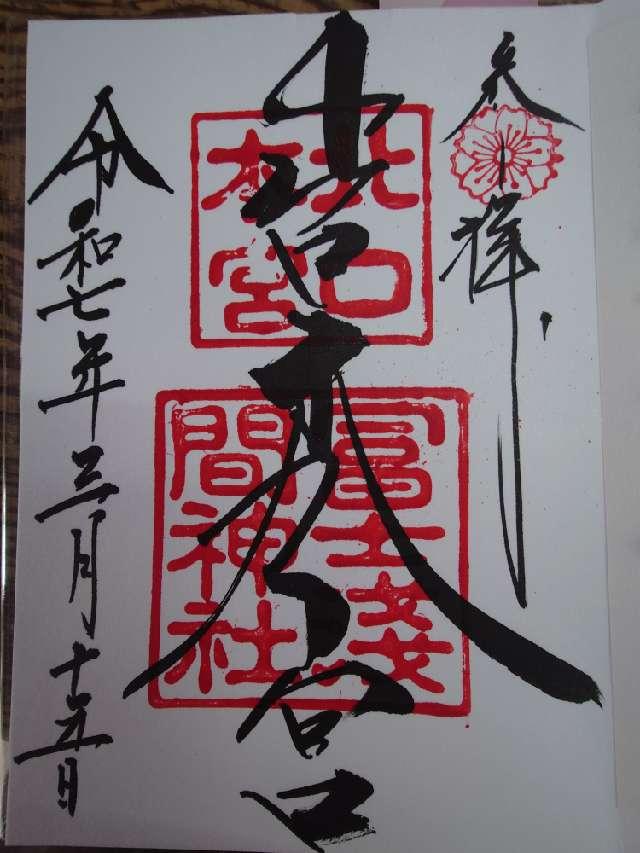 奉拝
北口
本宮
冨士淺
間神社
令和七年三月十五日